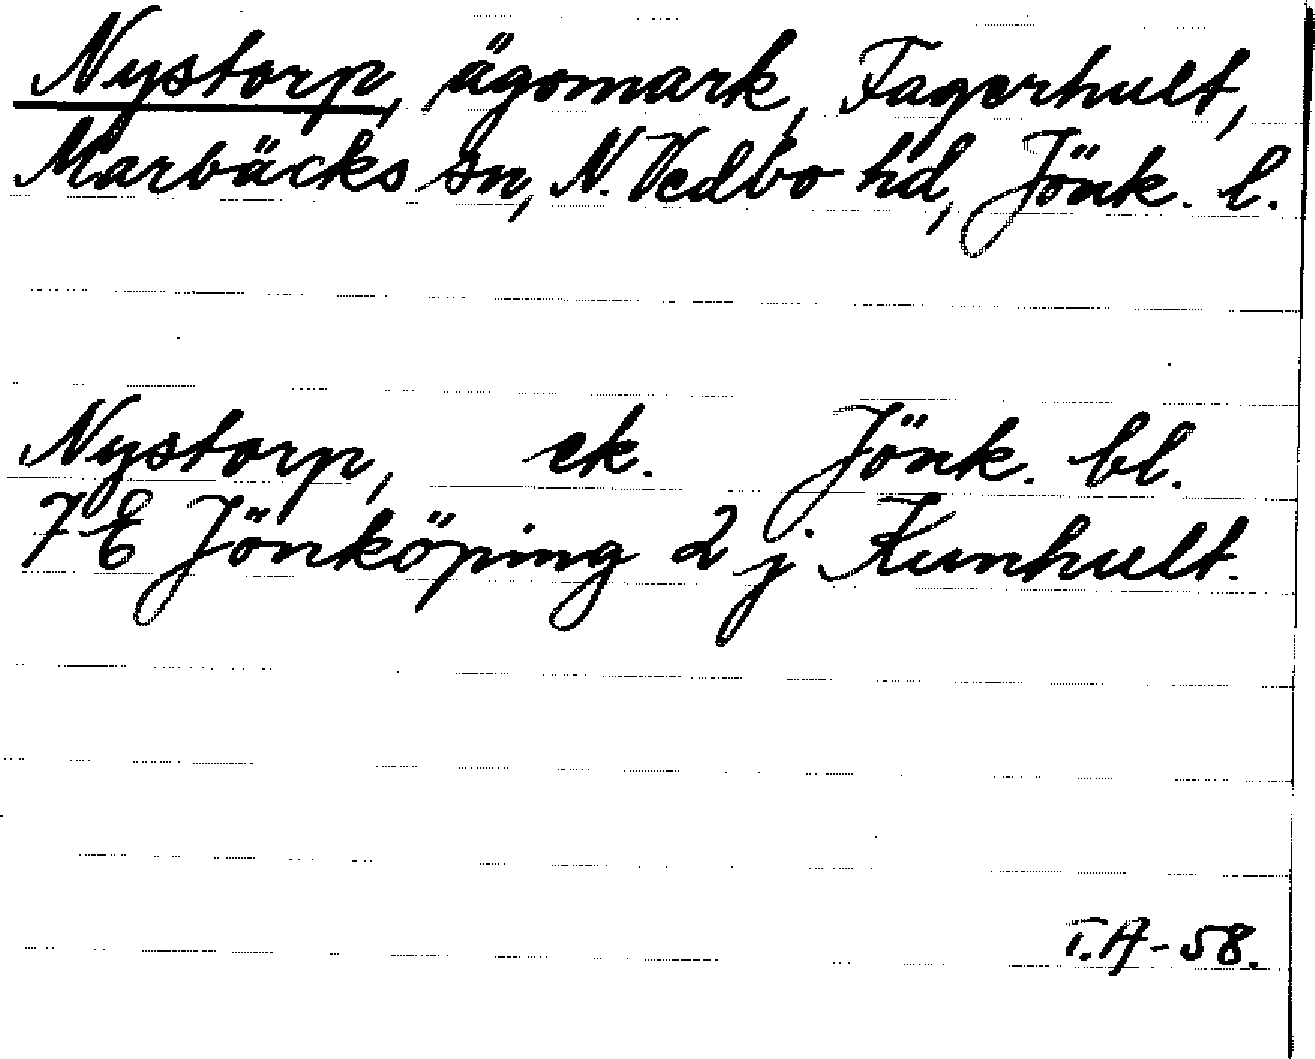 Nystorp, ägomark, Fagerhult,
Marbäcks sn, N. Vedbo hd, Jönk. l.
Nystorp, ek. Jönk. bl.
7 E Jönköping 2 j Kunhult.
T.A-58.